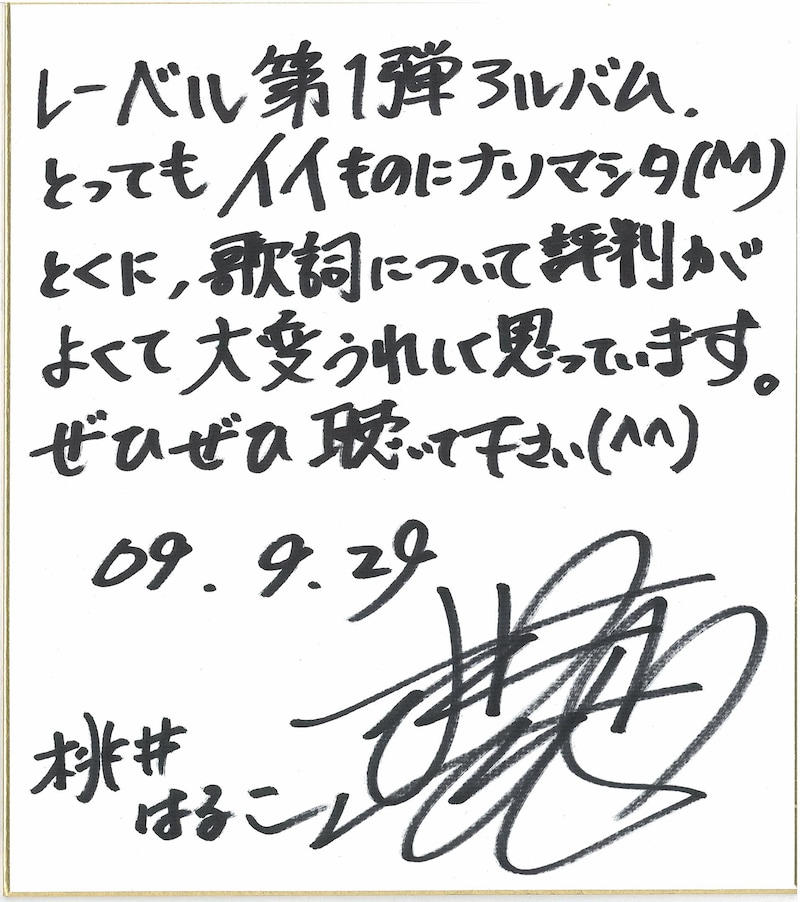 レーベル第1弾アルバム.
とっても イイものにナリマシタ(^^)
とくに,歌詞について評判が
よくて大変うれしく思っています。
ぜひぜひ聴いて下さい(^^)
09.9.29
桃井
はるこ